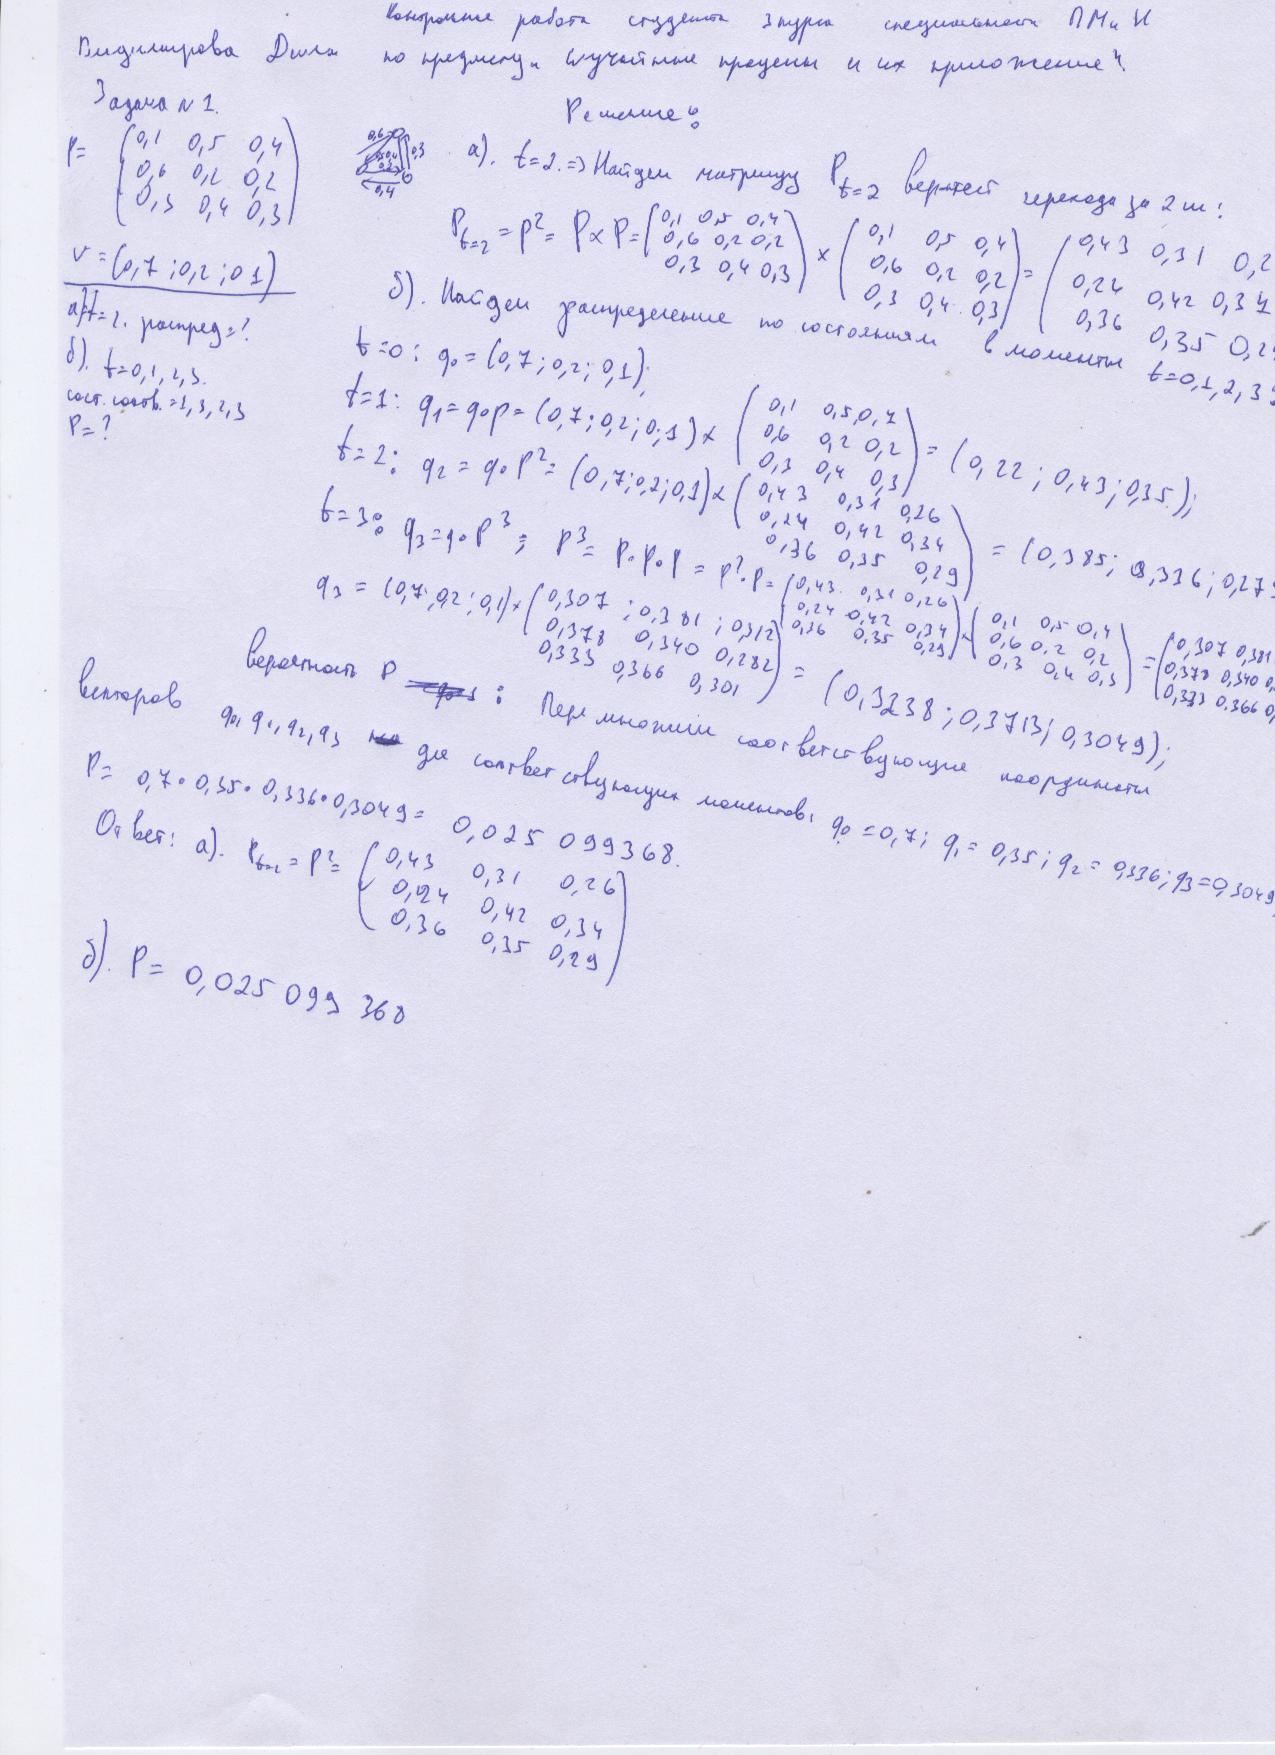 Контрольная работа студента 3 курса специальности ПМиИ
по предмету „Случайные процессы и их приложение“.
Задача №1.
Решение:
P= (0,1 0,5 0,4
0,6 0,2 0,2
0,3 0,4 0,3)
0,6 0,3
0,4
V=(0,7;0,2;0,1)
а) t=2. распред=?
б). t=0,1,2,3.
сост. соотв.=1,3,2,3
P=?
а). t=2.=> Найдем матрицу P t=2 вер-тей перехода за 2 ш:
P t=2 = P² = P×P= (0,1 0,5 0,4
0,6 0,2 0,2
0,3 0,4 0,3) × (0,1 0,5 0,4
0,6 0,2 0,2
0,3 0,4 0,3) = (0,43 0,31 0,2
0,24 0,42 0,34
0,36 0,35 0,2
б). Найдем распределение по состояниям в моменты t=0,1,2,3
t=0: q0=(0,7;0,2;0,1);
t=1: q1=q0P=(0,7;0,2;0,1)× (0,1 0,5 0,4
0,6 0,2 0,2
0,3 0,4 0,3) = (0,22; 0,43; 0,35);
t=2: q2=q0P²=(0,7;0,2;0,1)× (0,43 0,31 0,26
0,24 0,42 0,34
0,36 0,35 0,29) = (0,385; 0,336; 0,279
t=3: q3=q0P³; P³= P·P·P = P²·P= (0,43 0,31 0,26
0,24 0,42 0,34
0,36 0,35 0,29) · (0,1 0,5 0,4
0,6 0,2 0,2
0,3 0,4 0,3) = (0,307 0,381
0,378 0,340 0,
0,333 0,366 0,
q3 = (0,7;0,2;0,1)× (0,307; 0,381; 0,312
0,378 0,340 0,282
0,333 0,366 0,301) = (0,3238; 0,3713; 0,3049);
вероятность P : Перемножим соответствующие координаты
векторов q0, q1, q2, q3 для соответствующих моментов: q0=0,7; q1=0,35; q2=0,336; q3=0,3049
P= 0,7·0,35·0,336·0,3049= 0,025 099368.
Ответ: а). P t=2 = P²= (0,43 0,31 0,26
0,24 0,42 0,34
0,36 0,35 0,29)
б). P= 0,025 099 368